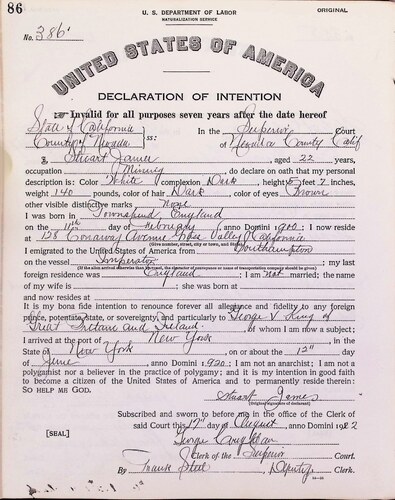 86
U. S. DEPARTMENT OF LABOR
NATURALIZATION SERVICE
ORIGINAL
No. 386
UNITED STATES OF AMERICA
DECLARATION OF INTENTION
Invalid for all purposes seven years after the date hereof
State of California
County of Nevada ss: In the Superior Court of Nevada County Calif
I, Stuart James aged 22 years,
occupation Mining, do declare on oath that my personal
description is: Color White, complexion Dark, height 5 feet 7 inches,
weight 140 pounds, color of hair Dark, color of eyes Brown
other visible distinctive marks None
I was born in England
on the day of February, anno Domini; I now reside
at 128 Conaway Avenue Grass Valley California
(Give number, street, city or town, and State.)
I emigrated to the United States of America from Southampton
on the vessel Imperator; my last
(If the alien arrived otherwise than by vessel, the character of conveyance or name of transportation company should be given.)
foreign residence was England; I am not married; the name
of my wife is; she was born at
and now resides at
It is my bona fide intention to renounce forever all allegiance and fidelity to any foreign
prince, potentate, state, or sovereignty, and particularly to George V King of
Great Britain and Ireland, of whom I am now a subject;
I arrived at the port of New York, in the
State of New York, on or about the 12th day
of June, anno Domini 1920; I am not an anarchist; I am not a
polygamist nor a believer in the practice of polygamy; and it is my intention in good faith
to become a citizen of the United States of America and to permanently reside therein:
SO HELP ME GOD.
Stuart James
(Original signature of declarant)
Subscribed and sworn to before me in the office of the Clerk of
[SEAL] said Court this 17th day of August, anno Domini 1922
George
Clerk of the Superior Court.
By Frank Steel, Deputy Clerk.